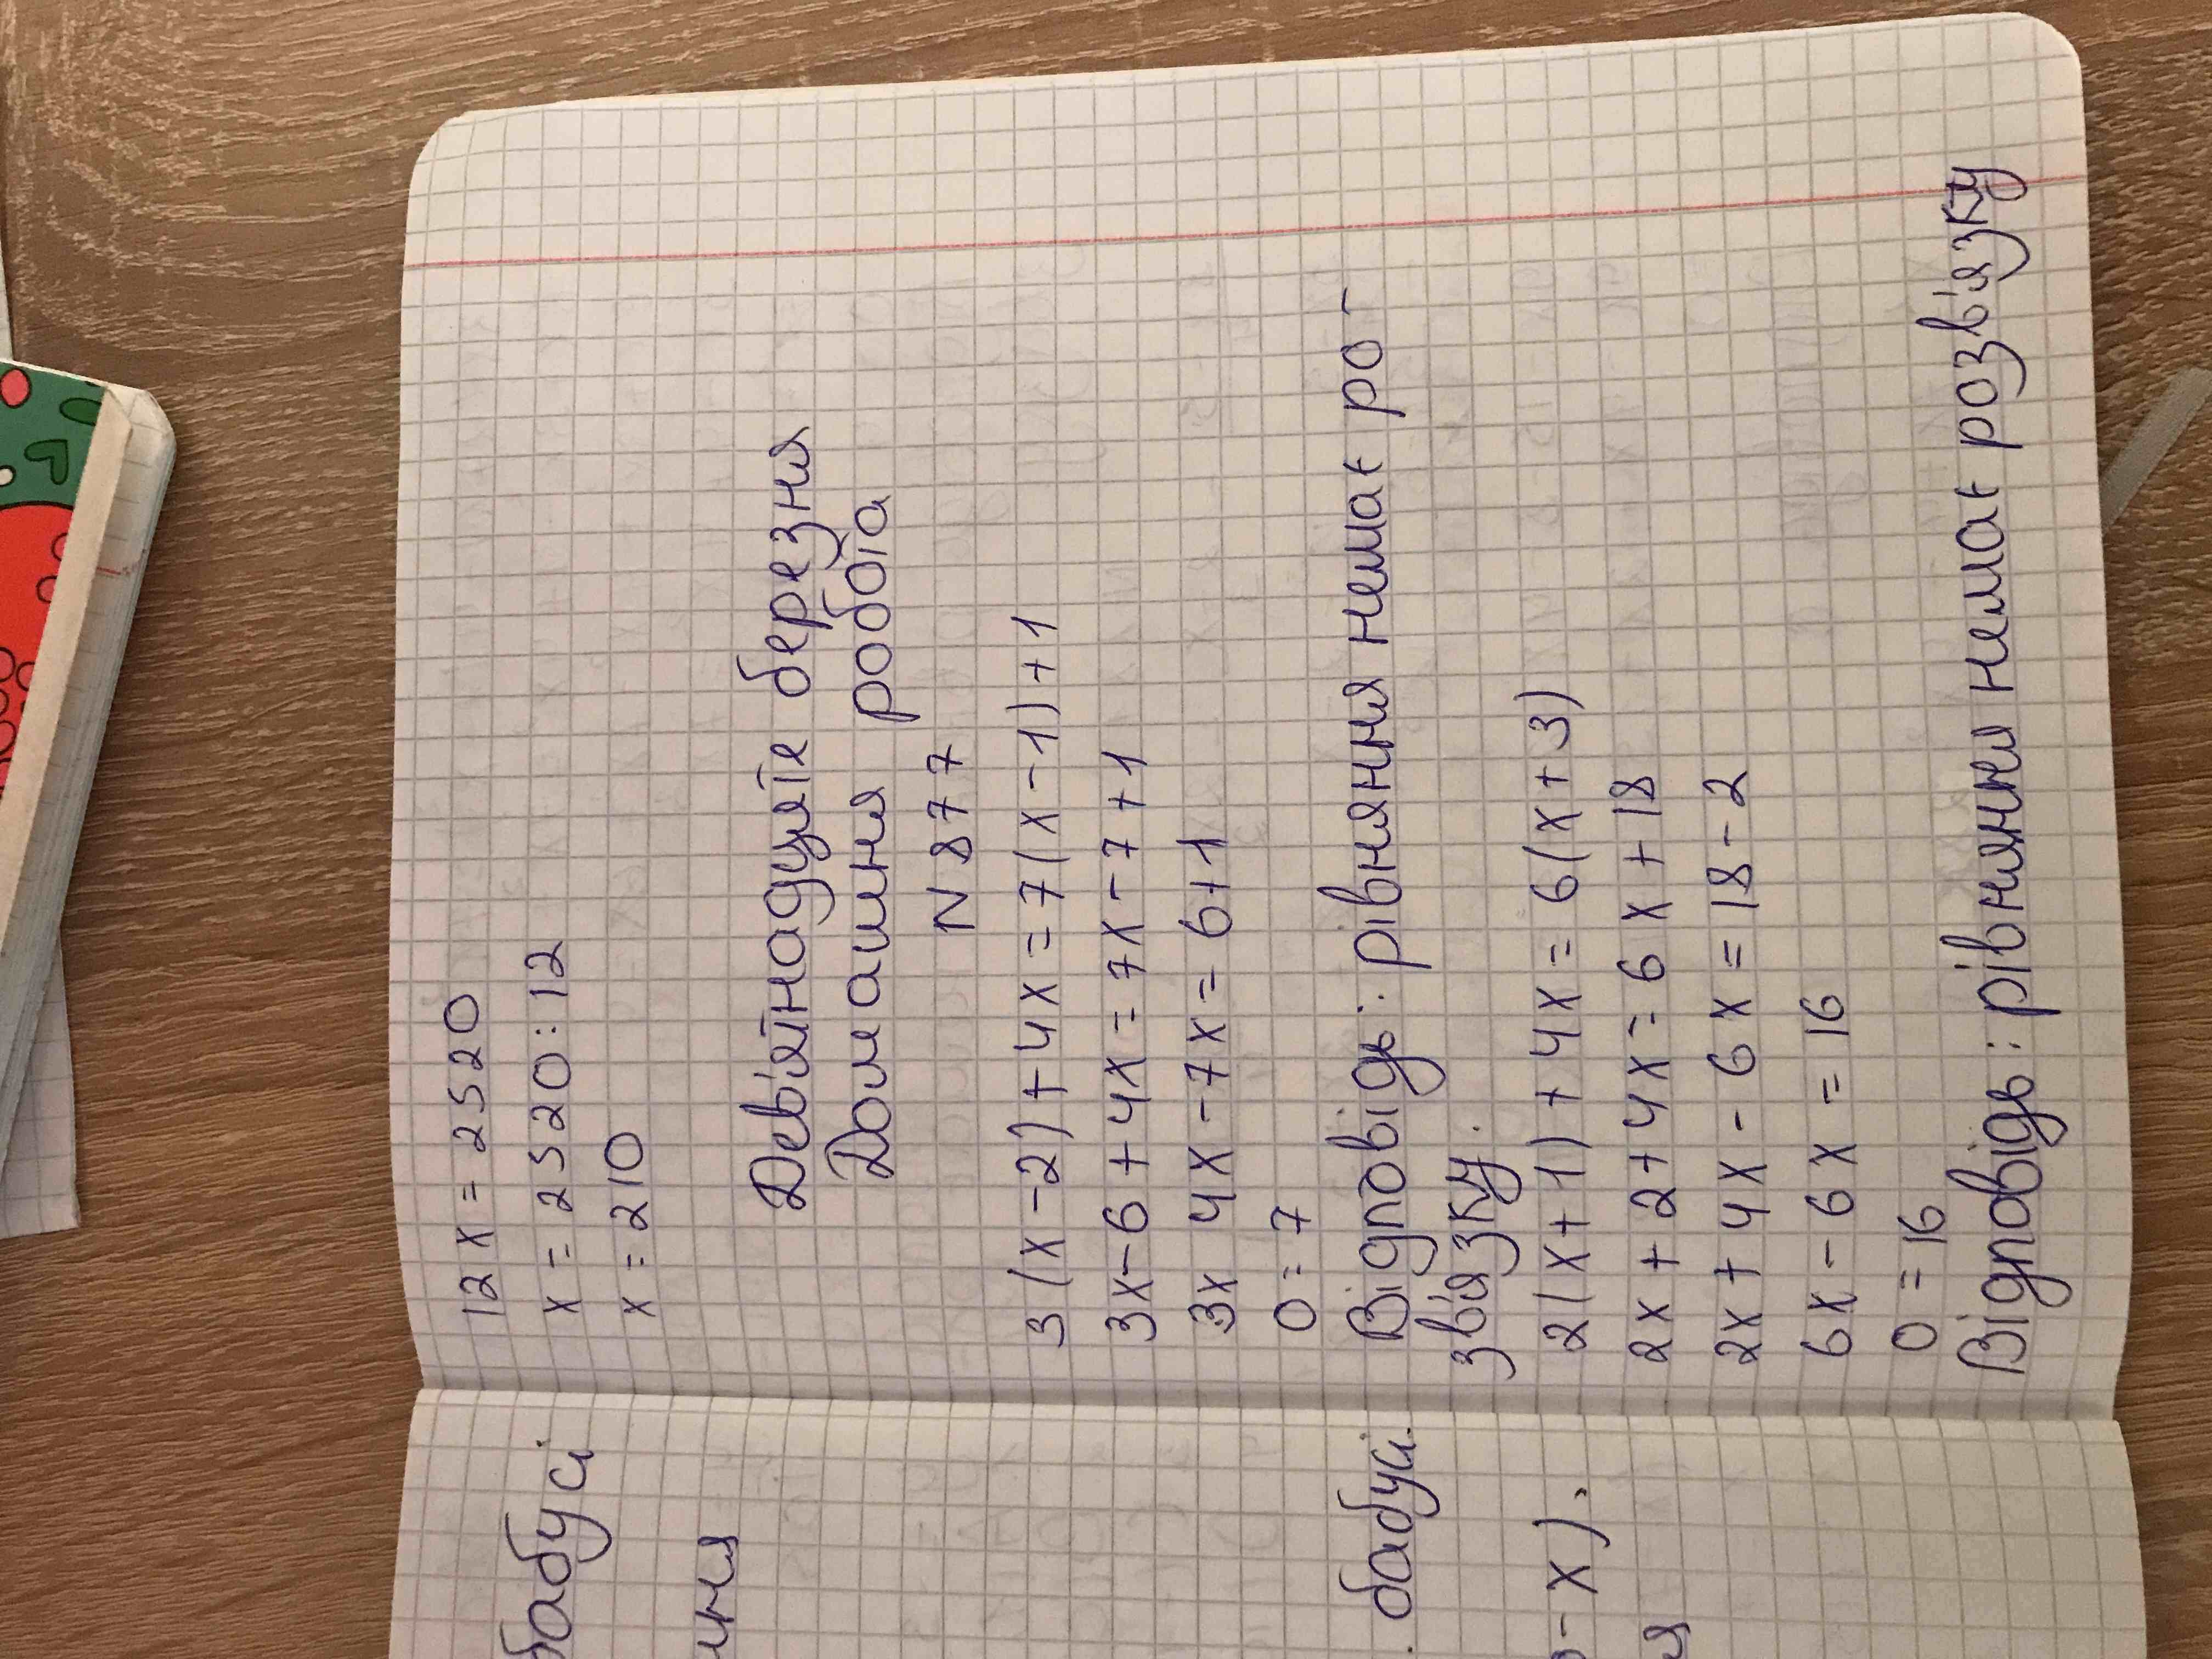 бабусі
. бабусі.
- x).
12x = 2520
x = 2520:12
x = 210
Дев'ятнадцяте березня
Домашня робота
N 877
3(x-2)+4x=7(x-1)+1
3x-6+4x=7x-7+1
3x 4x-7x=6+1
0=7
Відповідь: рівняння немає ро-
зв'язку.
2(x+1)+4x=6(x+3)
2x+2+4x=6x+18
2x+4x-6x=18-2
6x-6x=16
0=16
Відповідь: рівняння немає розв'язку